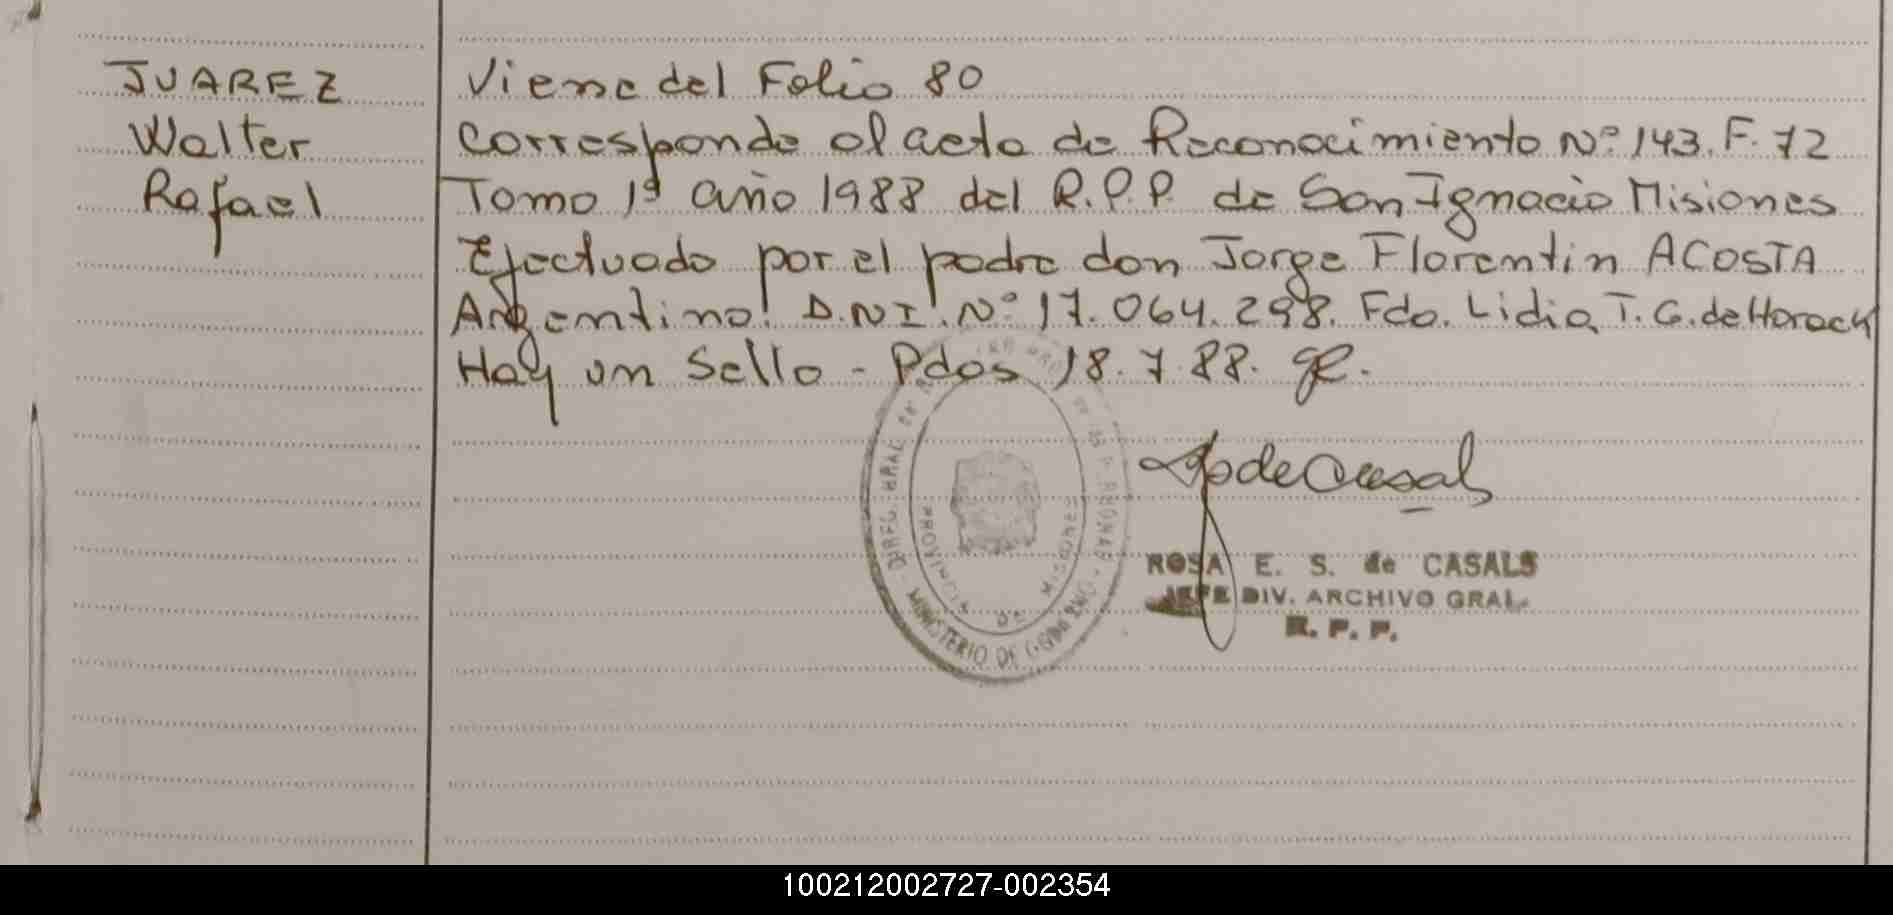 JUAREZ
Walter
Rafael
Viene del Folio 80
Corresponde al acta de Reconocimiento Nº 143. F. 72
Tomo 1º año 1988 del R.P.P. de San Ignacio Misiones
Efectuado por el padre don Jorge Florentin ACOSTA
Argentino. D.N.I. Nº 17.064.298. Fdo. Lidia T. G. de Horack
Hay un Sello - Pdas 18.7.88.
MINISTERIO DE GOBIERNO
PROVINCIA DE MISIONES
ROSA E. S. de CASALS
JEFE DIV. ARCHIVO GRAL.
R. P. P.
100212002727-002354